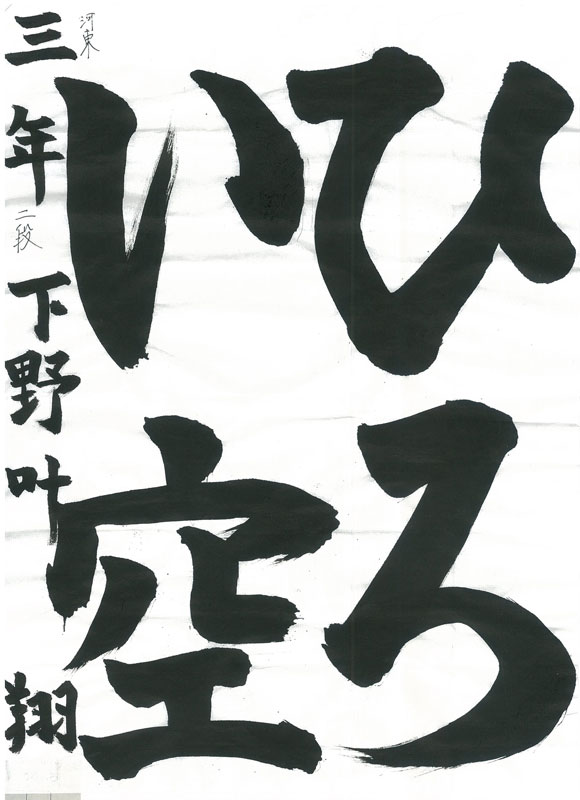 ひろ
い空
河東
三年
二段
下野叶翔